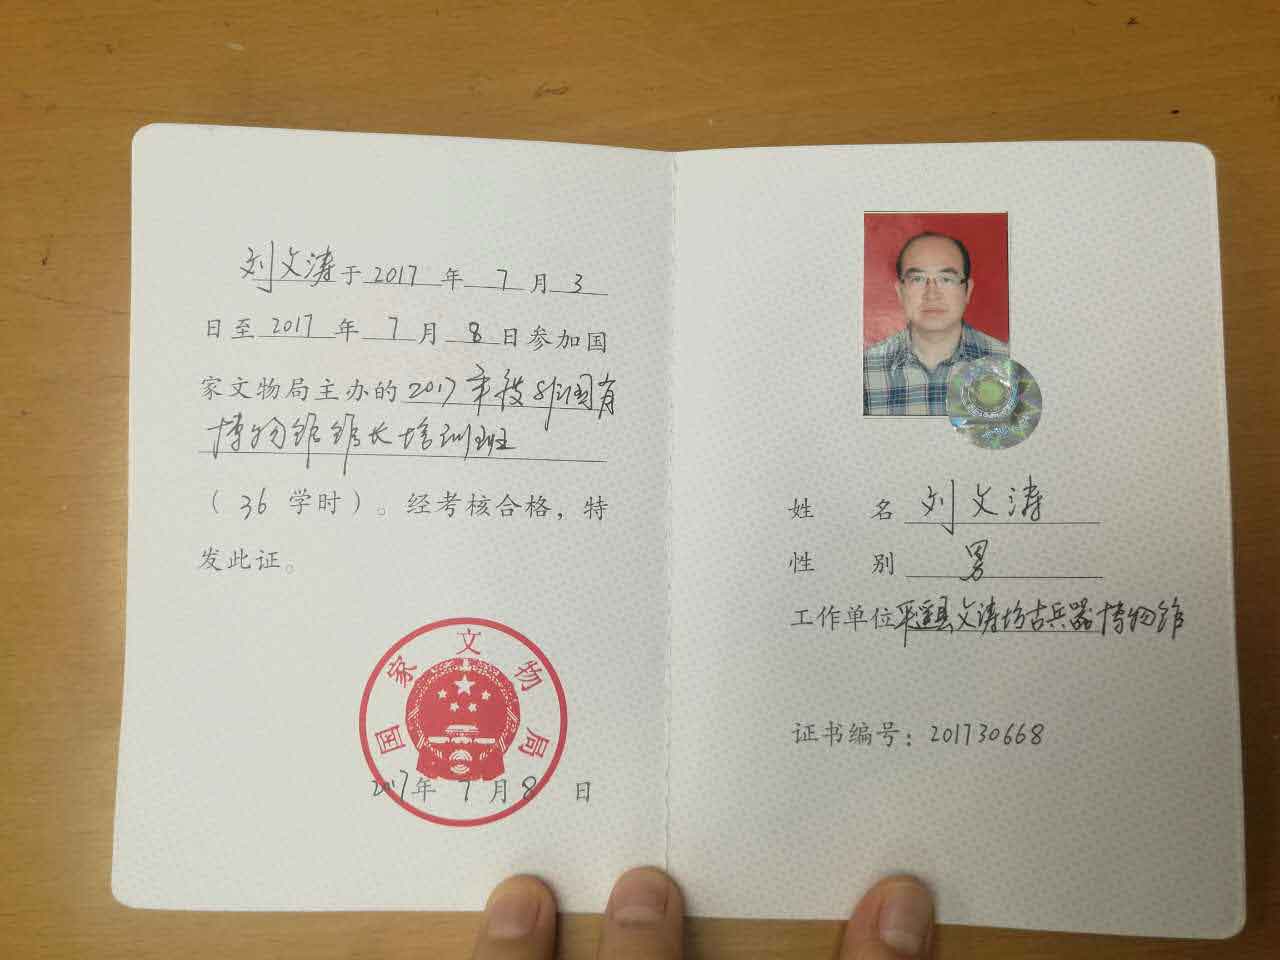 刘文涛于2017年7月3
日至2017年7月8日参加国
家文物局主办的2017年度非国有
博物馆馆长培训班
(36学时)。经考核合格，特
发此证。
国家文物局
2017年7月8日
姓 名 刘文涛
性 别 男
工作单位平遥县文涛坊古兵器博物馆
证书编号：201730668